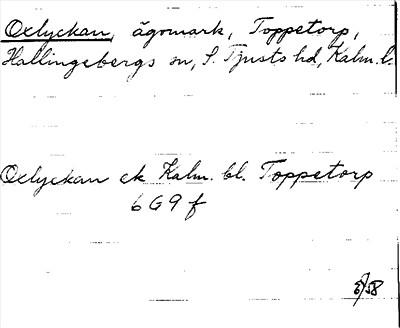 Oxlyckan, ägomark, Toppetorp,
Hallingebergs sn, S. Tjusts hd, Kalm. l.
Oxlyckan ek Kalm. bl. Toppetorp
6 G 9 f
5/58